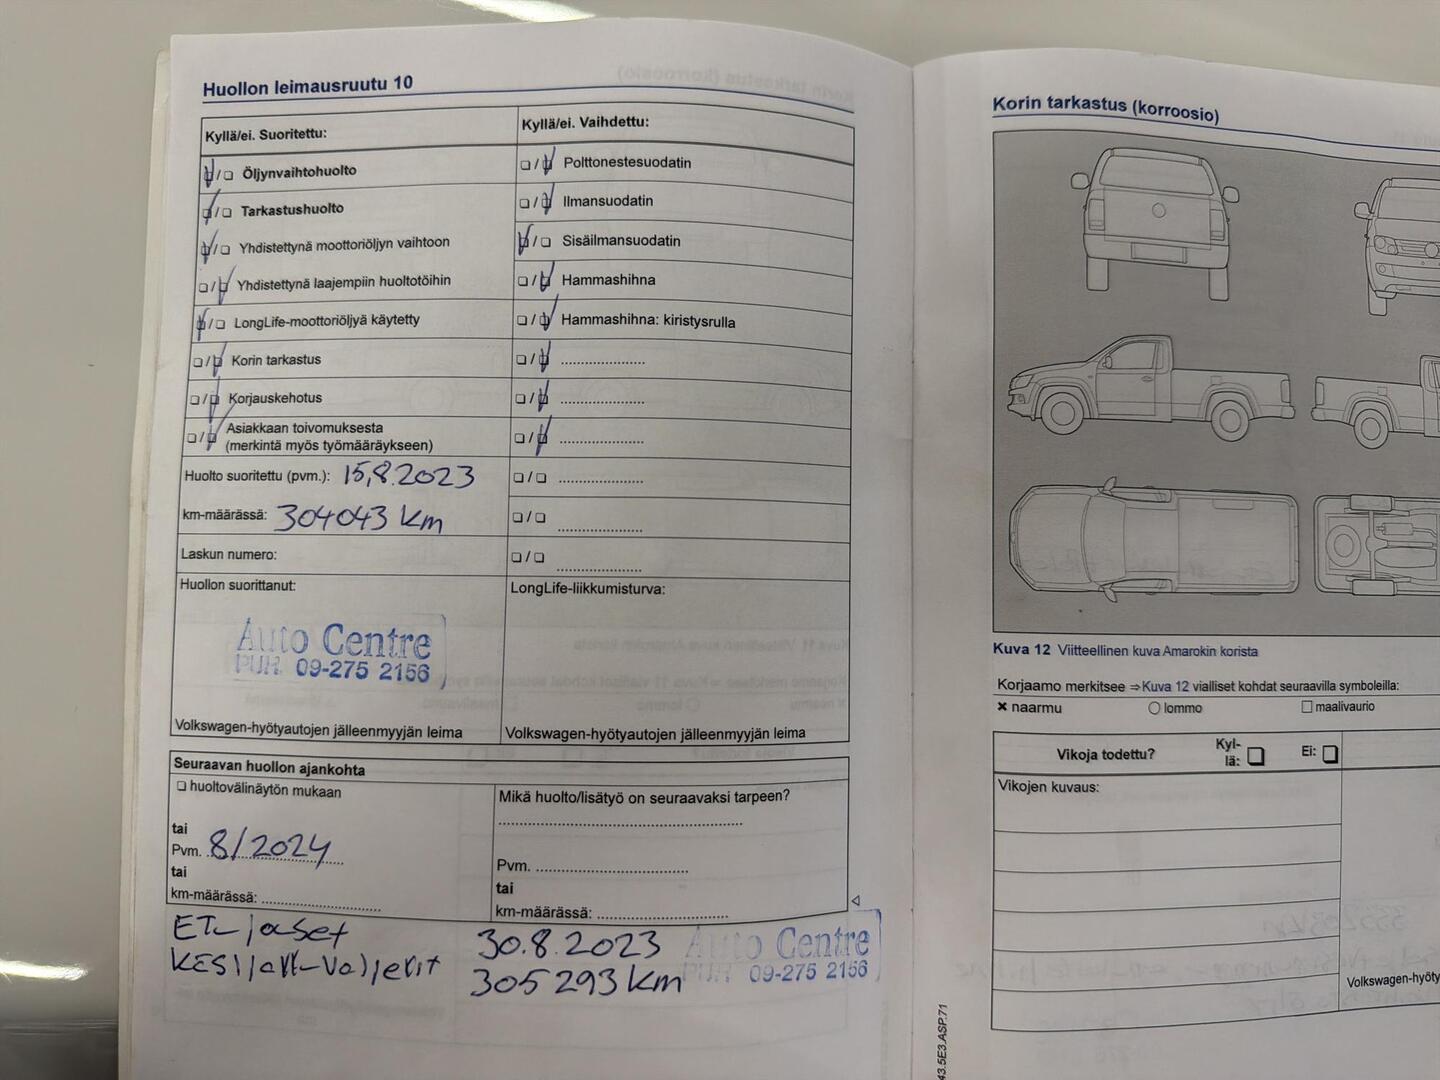 Huollon leimausruutu 10
Kyllä/ei. Suoritettu:
Öljynvaihtohuolto
Tarkastushuolto
Yhdistettynä moottoriöljyn vaihtoon
Yhdistettynä laajempiin huoltotöihin
LongLife-moottoriöljyä käytetty
Korin tarkastus
Korjauskehotus
Asiakkaan toivomuksesta
(merkintä myös työmääräykseen)
Huolto suoritettu (pvm.): 15,8.2023
km-määrässä: 304043 km
Laskun numero:
Huollon suorittanut:
Auto Centre
PUH. 09-275 2156
Volkswagen-hyötyautojen jälleenmyyjän leima
Kyllä/ei. Vaihdettu:
Polttonestesuodatin
Ilmansuodatin
Sisäilmansuodatin
Hammashihna
Hammashihna: kiristysrulla
LongLife-liikkumisturva:
Volkswagen-hyötyautojen jälleenmyyjän leima
Seuraavan huollon ajankohta
huoltovälinäytön mukaan
tai
Pvm. 8/2024
tai
km-määrässä:
Mikä huolto/lisätyö on seuraavaksi tarpeen?
Pvm.
tai
km-määrässä:
30.8.2023
305293 km
Auto Centre
PUH. 09-275 2156
Korin tarkastus (korroosio)
Kuva 12 Viitteellinen kuva Amarokin korista
Korjaamo merkitsee ⇒Kuva 12 vialliset kohdat seuraavilla symboleilla:
naarmu
lommo
maalivaurio
Vikoja todettu?
Kyl-
lä:
Ei:
Vikojen kuvaus:
Volkswagen-hyöty
43.5E3.ASP.71